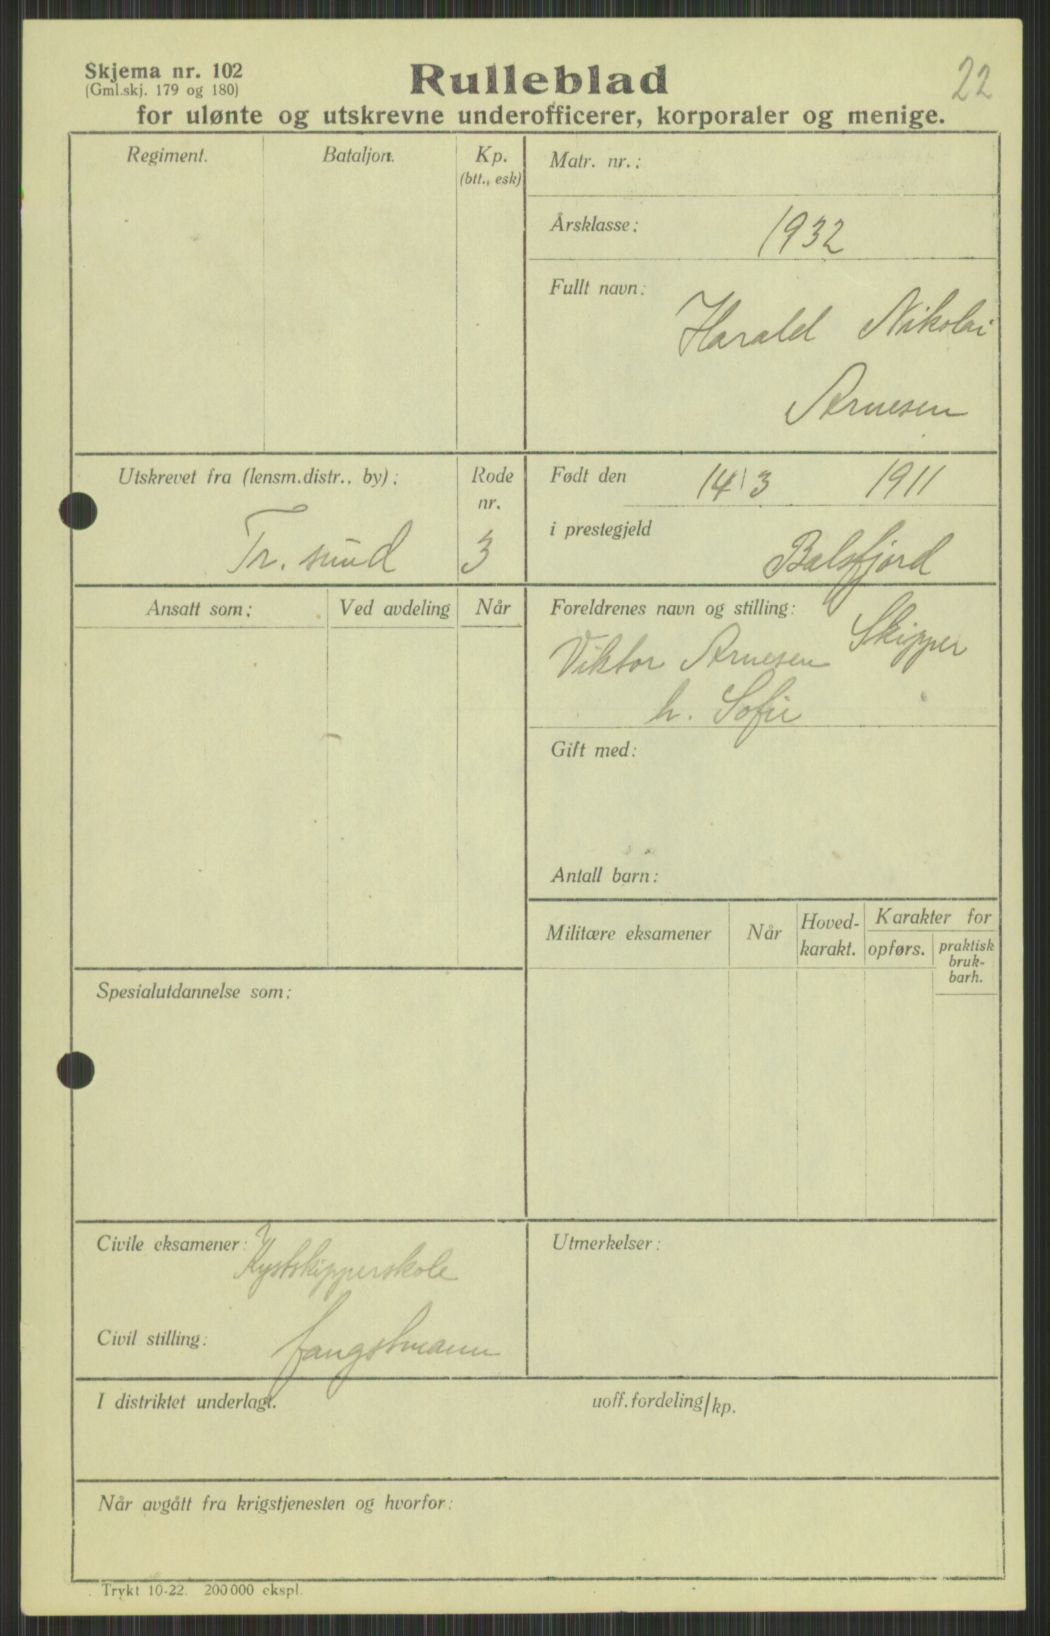 Skjema nr. 102
(Gml.skj. 179 og 180)
Rulleblad
22
for ulønte og utskrevne underofficerer, korporaler og menige.
Regiment.
Bataljon.
Kp.
(btt., esk)
Matr. nr.:
Årsklasse: 1932
Fullt navn: Harald Nikolai
Arnesen
Utskrevet fra (lensm.distr., by):
Tr. sund
Rode
nr.
3
Født den 14/3 1911
i prestegjeld Balsfjord
Ansatt som:
Ved avdeling
Når
Foreldrenes navn og stilling:
Skipper
Viktor Arnesen
h. Sofie
Gift med:
Antall barn:
Militære eksamener
Når
Hoved-
karakt.
Karakter for
opførs.
praktisk
bruk-
barh.
Spesialutdannelse som:
Civile eksamener: Kystskipperskole
Civil stilling: fangstmann
Utmerkelser:
I distriktet underlagt.
uoff.fordeling/kp.
Når avgått fra krigstjenesten og hvorfor:
Trykt 10-22. 200 000 ekspl.